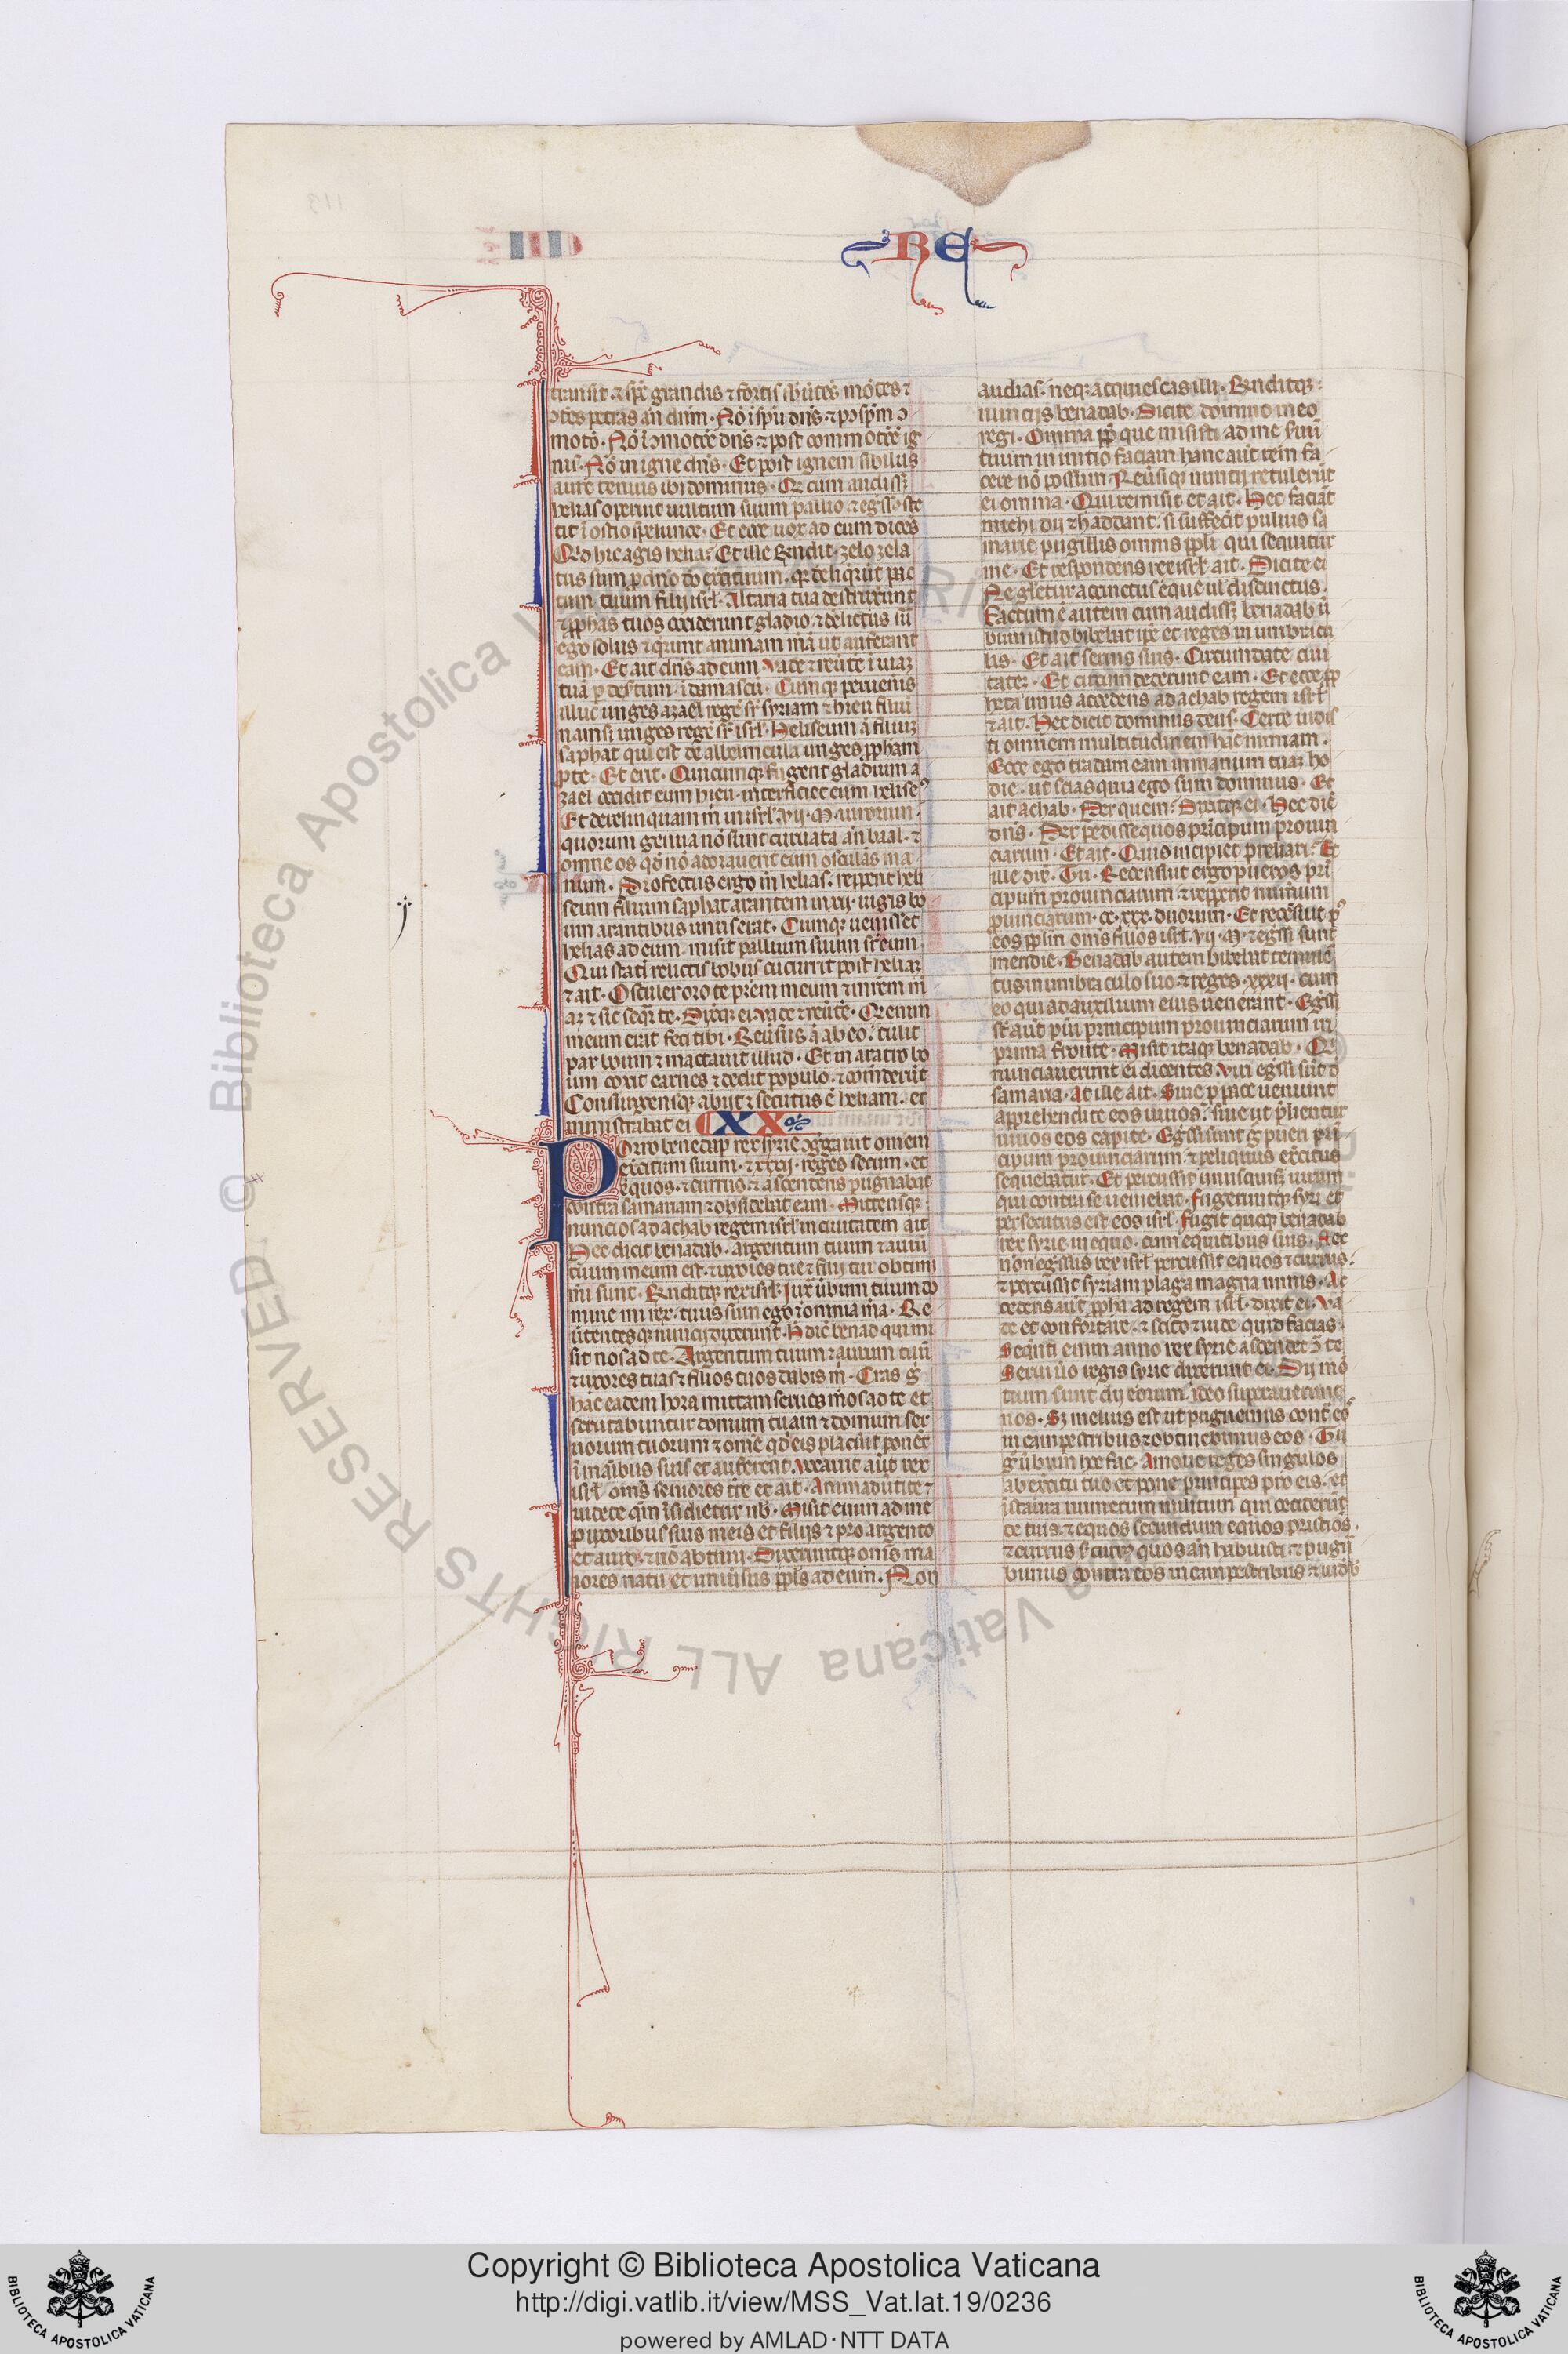 RE
transit ⁊ sp̄c grandis ⁊ fortis sb̄ūtēs mōtes ⁊
ↄt̄es petras an̄ dn̄m · Nō ī sp̄u dn̄s · ⁊ pꝰ sp̄m ↄ
motō · Nō ī ↄmotōe dn̄s · ⁊ post commotōe ig
nis · Nō in igne dn̄s · Et post ignem sibilus
aure tenuis ibi dominus · Qd cum audissꝫ
helias operuit uultum suum pallio · ⁊ egssꝰ ste
tit ī ostio spelunce · Et ecce uox ad eum dicēs
Qid hic agis helia ? Et ille Rndit · zelo zela
tus sum p dno do exītuum · qr deliqrūt pac
tum tuum filij isrl̄ · Altaria tua destruxerunt
⁊ ꝓphas tuos occiderunt gladio · ⁊ delictus sū
ego solus ⁊ qrunt animam mā ut auferant
eam · Et ait dn̄s ad eum vade ⁊ reūte ī uiaꝫ
tuā p desr̄tum · ī damascū · Cumqꝫ perueneris
illuc unges azael regē sr̄ syriam ⁊ hieu filiū
namsi unges regē sr̄ isrl̄ · Heliseum ā filiuꝫ
saphat qui est de abelmeula unges ꝓpham
p te · Et erit · Quicumqꝫ fugerit gladium a
zael occidet eum hieu · interficiet eum heliseꝰ
Et derelinquam m̄ in isrl̄ · vij · M · uirorum ·
quorum genua nō sunt curuata an̄ baal · ⁊
omne os qd̄ nō adorauerit eum osculās ma
num · Profectus ergo in̄ helias · repperit heli
seum filium saphat arantem in xij · iugis bo
um arantibus unus erat · Cumqꝫ uenisset
helias ad eum · misit pallium suum sr̄ eum ·
Qui stati relictis bobus cucurrit post heliaꝫ
⁊ ait · Osculer oro te prēm meum ⁊ mrēm m̄
aꝫ ⁊ sic seqr̄ te · Dixqꝫ ei vade ⁊ reūte · Qd enim
meum erat feci tibi · Reūsus ā ab eo : tulit
par boum ⁊ mactauit illud · Et in aratro bo
um coxit carnes ⁊ dedit populo · ⁊ comederūt
Consurgensqꝫ abijt ⁊ secutus ē heliam · et
ministrabat ei XX
Porro benedap rex syrie ↄggauit omēm
exercitum suum · ⁊ xxxij · reges secum · et
equos · ⁊ currus · ⁊ ascendens pugnabat
contra samariam ⁊ obsidebat eam · Mittensqꝫ
nuncios ad achab regem isrl̄ in ciuitatem ait
Hec dicit benadab · argentum tuum ⁊ aurū
tuum meum est · ⁊ uxores tue ⁊ filij tui obtimi
mī sunt · Rnditqꝫ rex isrl̄ · Iux̄ ūbum tuum do
mine mi rex · tuus sum ego ⁊ omnia mā · Re
ūtentesqꝫ nuncij dixerunt · H dic̄ benad qui mi
sit nos ad te · Argentum tuum ⁊ aurum tuū
⁊ uxores tuas ⁊ filios tuos dabis m̄ · Cras g̊
hac eadem hora mittam seruos mōs ad te et
scrutabuntur domum tuam ⁊ domum ser
uorum tuorum ⁊ om̄e qd̄ eis placūit ponēt
ī māibus suis et auferent · vocauit aūt rex
isrl̄ om̄s seniores tr̄e et ait · Animadūtite ⁊
uidete qm̄ īsidietur nb̄ · Misit enim ad me
p uxoribus suis meis et filijs ⁊ pro argento
et auro · ⁊ nō abnui · Dixeruntqꝫ om̄s ma
iores natu et uniūsus ppl̄s ad eum · Non
audias · neqꝫ acquiescas illi · Rnditqꝫ :
nuncijs benadab · Dicite domino meo
regi · Omnia pp̄ que misisti ad me seruū
tuum in initio faciam hanc aūt rem fa
cere nō possum · Reūsiqꝫ nuntij retulerūt
ei omnia · Qui remisit et ait · Hec faciāt
michi dij ⁊ h̄ addant · si suffecit puluis sa
marie pugillis omnis ppl̄i qui sequitur
me · Et respondens rex isrl̄ ait · Dicite ei
Ne gl̄etur accinctus eque ul̄ disc̄inctus ·
Factum ē autem cum audissꝫ benadab ū
bum istud bibebat ip̄e et reges in umbracu
lis · Et ait seruis suis · Circumdate ciui
tateꝫ · Et circumdederunt eam · Et ecce pp̄
heta unus accedens ad achab regem isrl̄
⁊ ait · Hec dicit dominus deus · Certe uidis
ti omnem multitudinem hāc nimiam ·
Ecce ego tradam eam in manum tuaꝫ ho
die · ut scias quia ego sum dominus · Et
ait achab · Per quem ? Dixitqꝫ ei · Hec dic̄
dn̄s · Per pedissequos prīcipum prouin
ciarum · Et ait · Quis incipiet preliari ? Et
ille dix̄ · Tu · Recensuit ergo pueros prī
cipum prouinciarum · ⁊ repperit numerum
ꝓuinciarum · cc · xxx · duorum · Et recēsuit pꝰ
eos ppl̄m om̄s filios isrl̄ · vij · M · ⁊ egssi sunt
meridie · Benadab autem bibebat temule
tus in umbraculo suo · ⁊ reges · xxxij · cum
eo qui ad auxilium eius uenerant · Egssi
st̄ aūt pūi principum prouinciarum in
prima fronte · Misit itaqꝫ benadab · Qi
nunciauerunt ei dicentes viri egssi sūt d̄
samaria · At ille ait · Siue p pace ueniunt
apprehendite eos uiuos : siue ut p̄lientur
uiuos eos capite · Egssi sunt g̊ pueri prī
cipum prouinciarum · ⁊ reliquus ex̄citus
sequebatur · Et percussit unusquisqꝫ uirum
qui contra se ueniebat · fugeruntqꝫ syri et
persecutus est eos isrl̄ · fugit quoqꝫ benadab
rex syrie in equo · cum equitibus suis · Nec
non egssus rex isrl̄ percussit equos ⁊ currus :
⁊ percussit syriam plaga magna nimis · Ac
cedens aūt ꝓpha ad regem isrl̄ · dixit ei · Va
de et confortare · ⁊ scito ⁊ uide quid facias ·
Seqn̄ti enim anno rex syrie ascendet ↄ̄ te
Serui ūo regis syrie dixerunt ei · Dij mō
tium sunt dij eorum · ideo superauerunt
nos · Sꝫ melius est ut pugnemus contͣ eoꝰ
in campestribus ⁊ obtinebimus eos · Tu
g̊ ūbum hoc fac · Amoue reges singulos
ab exercitu tuo et pone principes pro eis · et
īstaura numerum militum qui ceciderūt
de tuis · ⁊ equos secundum equos pristiōs ·
⁊ currus s̄ currꝰ quos an̄ habuisti · ⁊ pugn̄
bimus contra eos in campestribus ⁊ uidbꝰ
Copyright © Biblioteca Apostolica Vaticana
http://digi.vatlib.it/view/MSS_Vat.lat.19/0236
powered by AMLAD·NTT DATA
BIBLIOTECA APOSTOLICA VATICANA
BIBLIOTECA APOSTOLICA VATICANA